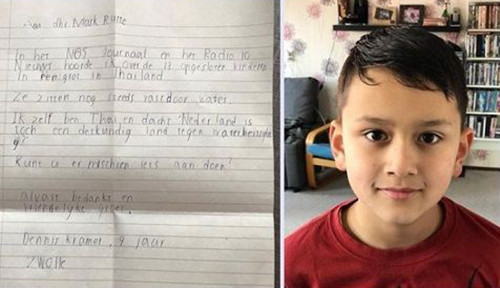 Aan dhr Mark Rutte
In het NOS Journaal en het Radio 10
Nieuws hoorde ik over de 12 opgesloten kinderen
in een grot in Thailand
Ze zitten nog steeds vast door water.
Ik zelf ben Thai en dacht Nederland is
toch een deskundig land tegen
Kunt u er misschien iets aan doen?
Alvast bedankt en
vriendelijke groet,
Dennis Kramer, 9 jaar
Zwolle